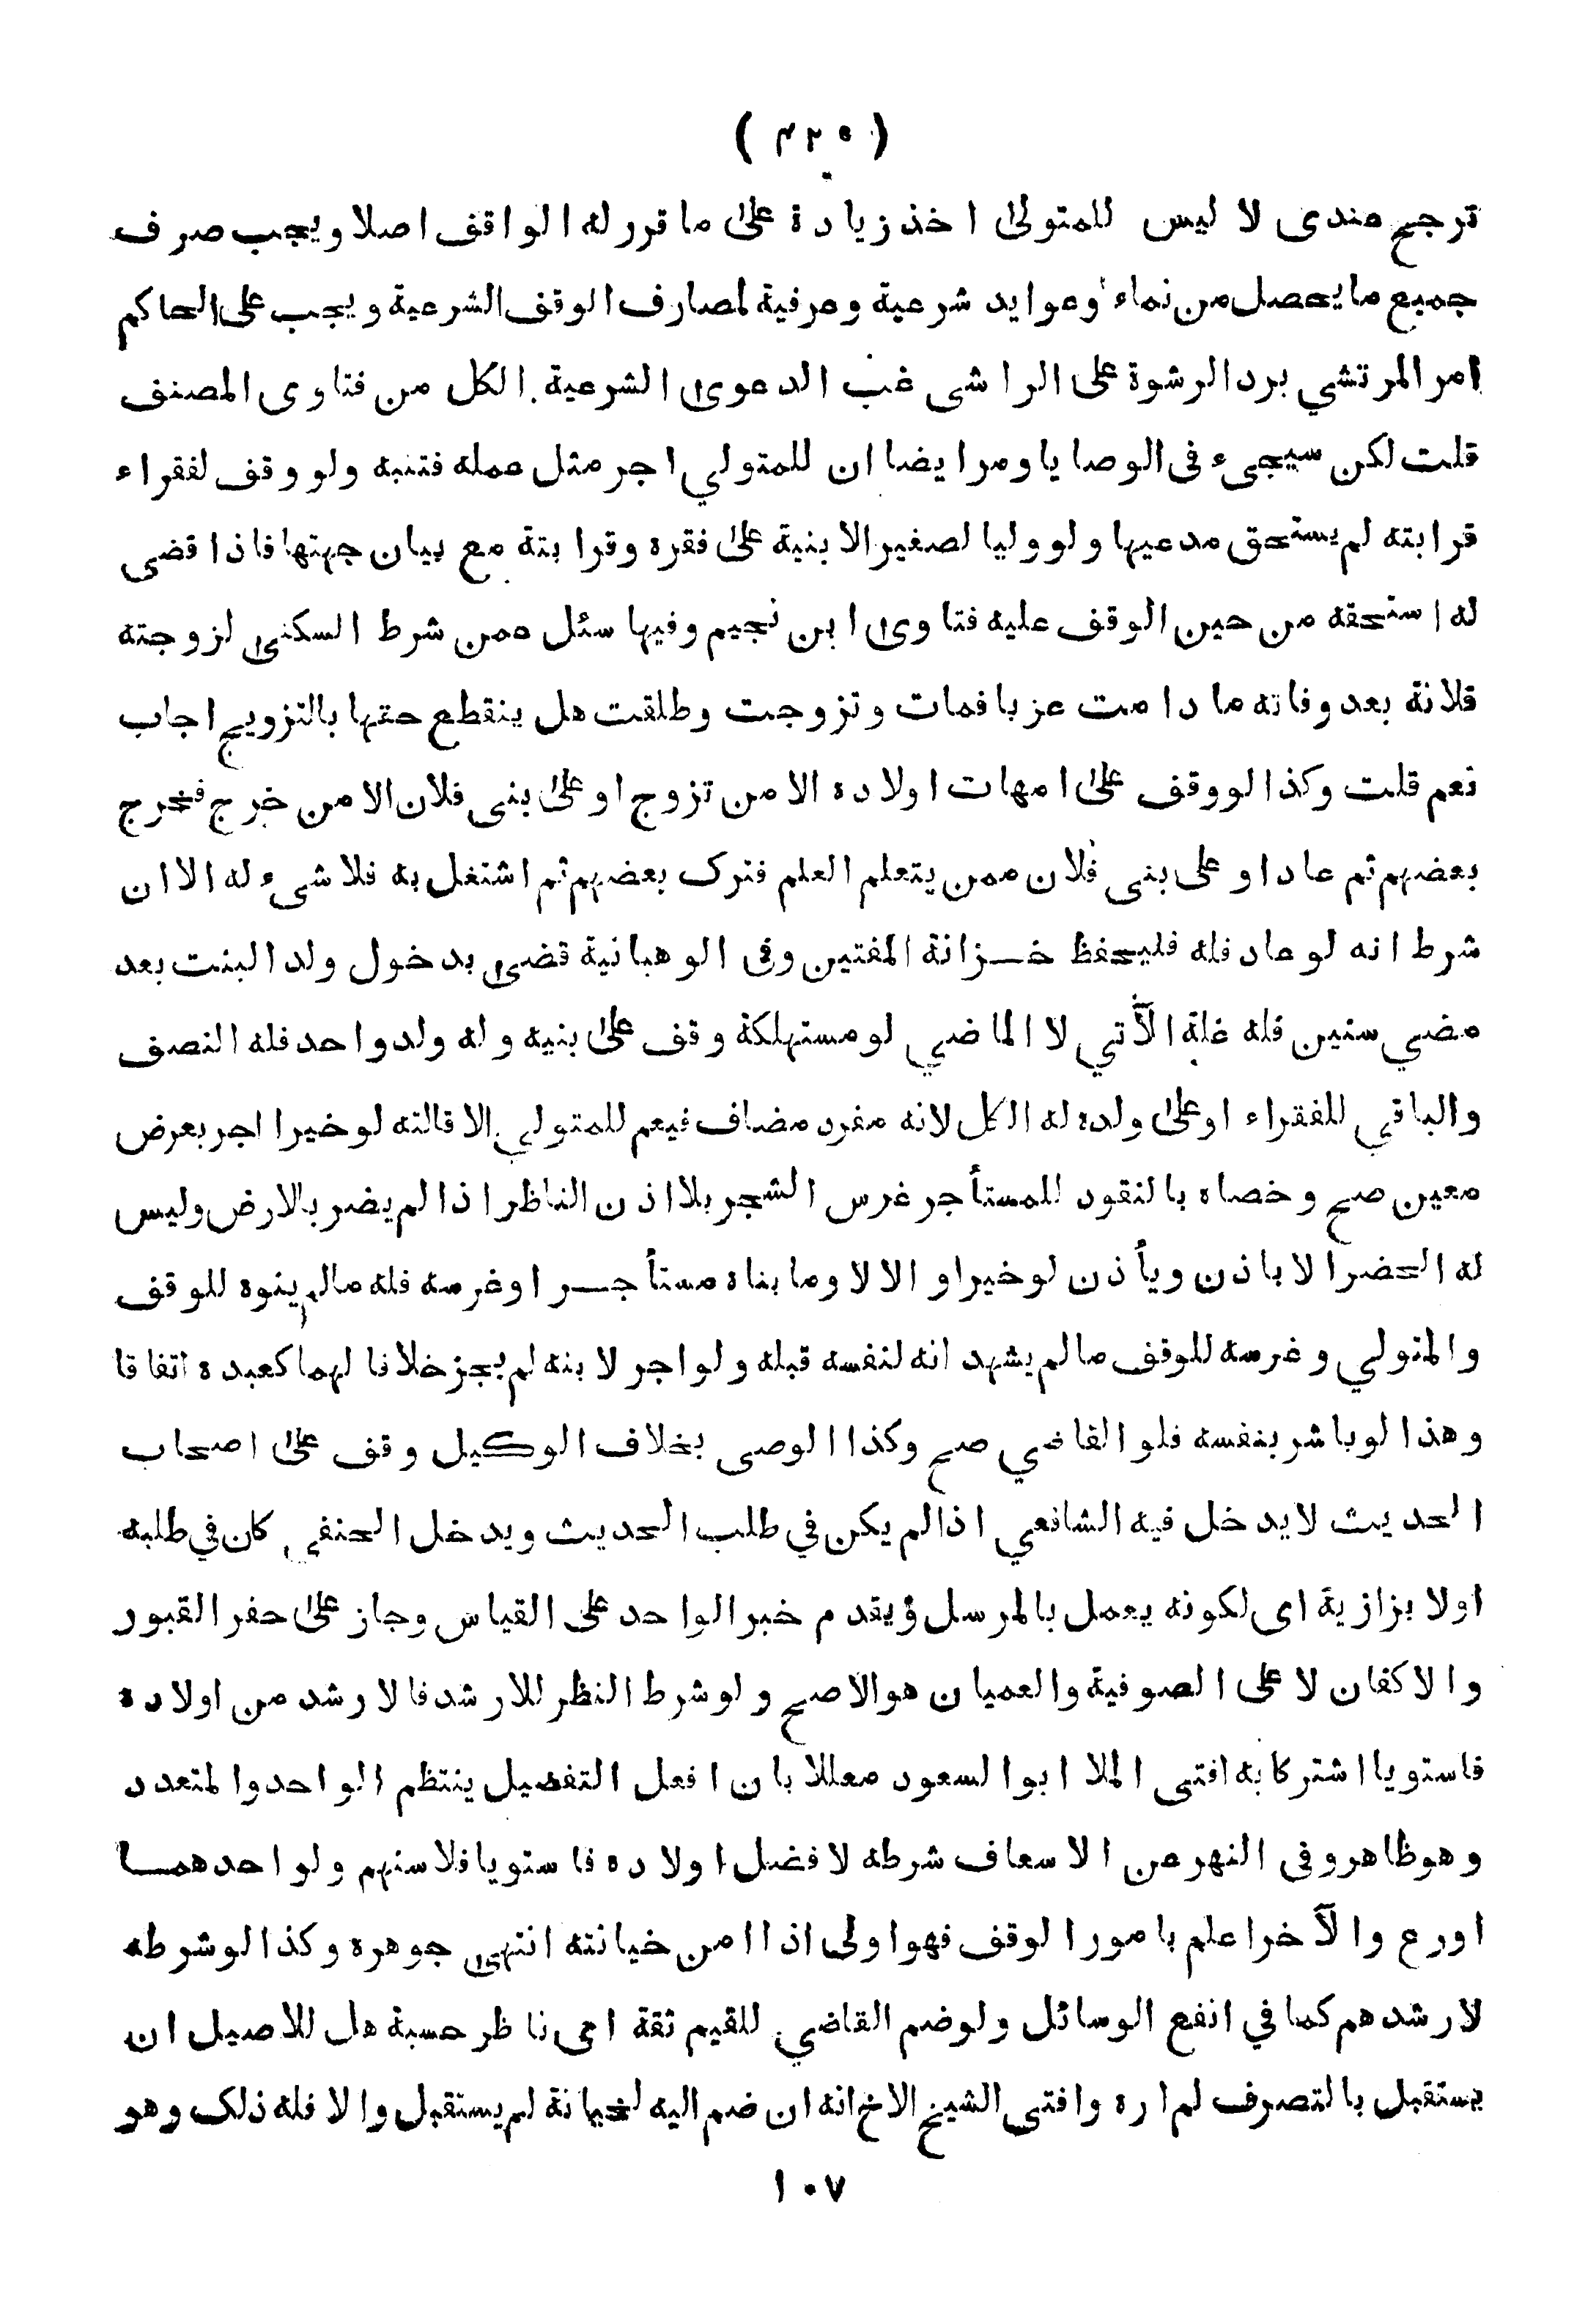 ( ٤٢٥ )
ترجح عندى لا ليس للمتولى اخذ زيادة على ما قرر له الواقف اصلا ويجب صرف
جميع ما يحصل من نماء وعوايد شرعية وعرفية لمصارف الوقف الشرعية ويجب على الحاكم
امر المرتشي برد الرشوة على الراشى غب الدعوى الشرعية الكل من فتاوى المصنف
قلت لكن سيجىء فى الوصايا ومر ايضا ان للمتولي اجر مثل عمله فتنبه ولو وقف لفقراء
قرابته لم يستحق مدعيها ولو وليا لصغير الا ببنية على فقره وقرابته مع بيان جهتها فاذا قضى
له استحقه من حين الوقف عليه فتاوى ابن نجيم وفيها سئل عمن شرط السكنى لزوجته
فلانة بعد وفاته ما دامت عزبا فمات وتزوجت وطلقت هل ينقطع حقها بالتزويج اجاب
نعم قلت وكذا لو وقف على امهات اولاده الا من تزوج او على بنى فلان الا من خرج فخرج
بعضهم ثم عاد او على بنى فلان ممن يتعلم العلم فترك بعضهم ثم اشتغل به فلا شىء له الا ان
شرط انه لو عاد فله فليحفظ خزانة المفتين وفى الوهبانية قضى بدخول ولد البنت بعد
مضي سنين فله غلة الآتي لا الماضي لو مستهلكة وقف على بنيه وله ولد واحد فله النصف
والباقي للفقراء او على ولده له الكل لانه مفرد مضاف فيعم للمتولي الاقالته لو خيرا اجر بعرض
معين صح وخصاه بالنقود للمستأجر غرس الشجر بلا اذن الناظر اذا لم يضر بالارض وليس
له الحضر الا باذن ويأذن لو خيرا والا لا وما بناه مستأجر او غرسه فله مالم ينوه للوقف
والمتولي وغرسه للوقف مالم يشهد انه لنفسه قبله ولو اجر لابنه لم يجز خلافا لهما كعبده اتفاقا
وهذا لو باشر بنفسه فلو القاضي صح وكذا الوصى بخلاف الوكيل وقف على اصحاب
الحديث لا يدخل فيه الشافعي اذا لم يكن في طلب الحديث ويدخل الحنفي كان في طلبه
اولا بزازية اى لكونه يعمل بالمرسل ويقدم خبر الواحد على القياس وجاز على حفر القبور
والاكفان لا على الصوفية والعميان هو الاصح ولو شرط النظر للارشد فالارشد من اولاده
فاستويا اشتركا به افتى الملا ابو السعود معللا بان افعل التفضيل ينتظم الواحد والمتعدد
وهو ظاهر وفى النهر عن الاسعاف شرطه لافضل اولاده فاستويا فلاسنهم ولو احدهما
اورع والآخر اعلم بامور الوقف فهو اولى اذا امن خيانته انتهى جوهره وكذا لو شرطه
لارشدهم كما في انفع الوسائل ولو ضم القاضي للقيم ثقة اى ناظر حسبة هل للاصيل ان
يستقبل بالتصرف لم اره وافتى الشيخ الاخ انه ان ضم اليه لخيانة لم يستقبل والا فله ذلك وهو
١٠٧